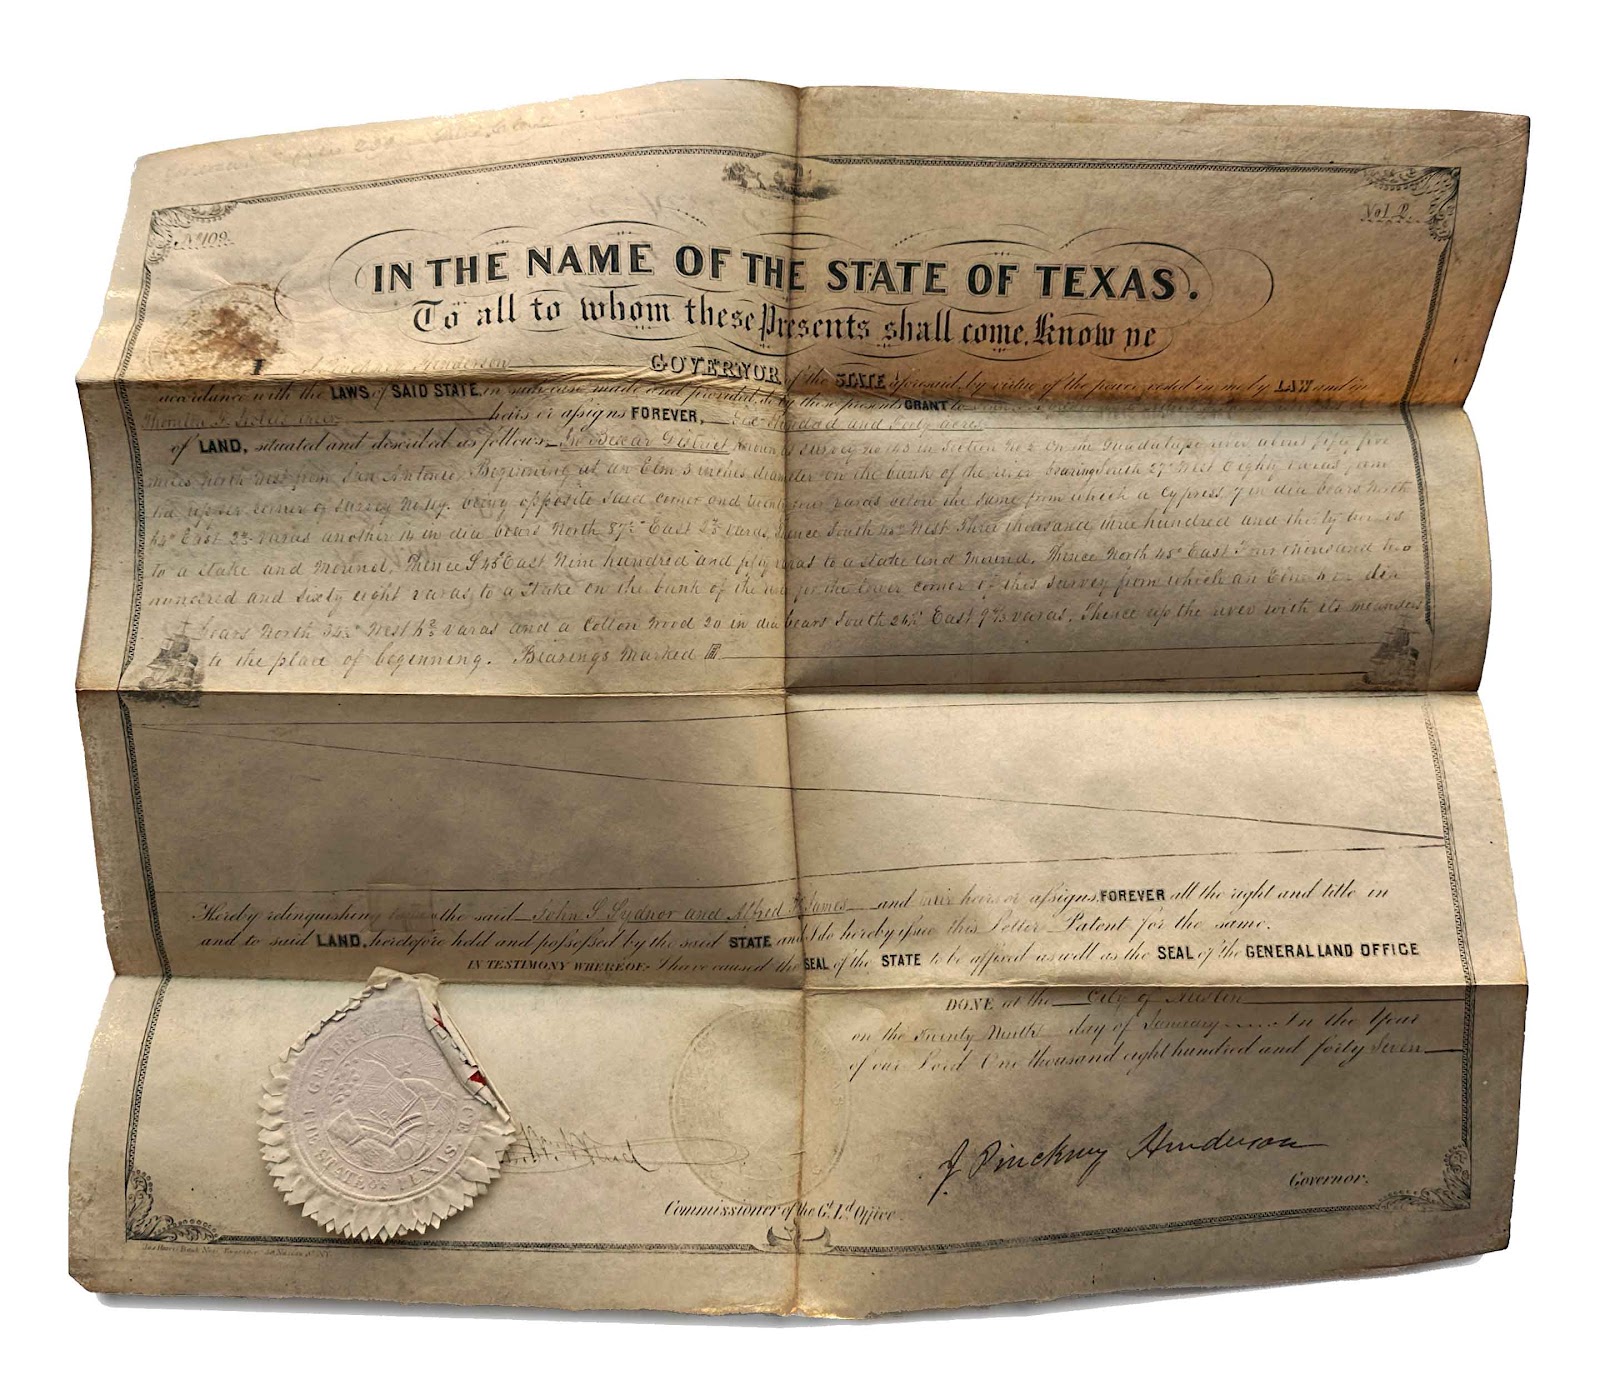 No 109.
Vol 2.
IN THE NAME OF THE STATE OF TEXAS.
To all to whom these Presents shall come, Know ye
I Henderson GOVERNOR of the STATE aforesaid, by virtue of the power vested in me by LAW and in
accordance with the LAWS of SAID STATE, in such case made and provided, do by these presents GRANT to
their heirs or assigns FOREVER, Six Hundred and Forty acres
of LAND, situated and described as follows. In Bexar District Known as Survey no 143 in Section No 2 On the Guadalupe river about fifty five
miles North West from San Antonio. Beginning at an Elm 5 inches diameter on the bank of the river bearing South 27° West Eighty varas from
the upper corner of Survey No 104. being opposite said corner and twenty four varas before the same from which a Cypress 7 in dia bears North
East varas another 14 in dia bears North East varas, Thence South 45° West Three thousand three hundred and thirty two vs
to a stake and Mound, Thence S 45° East Nine hundred and fifty varas to a stake and Mound. Thence North 45° East Four thousand two
hundred and sixty eight varas to a Stake on the bank of the river for the lower corner of this survey from which an Elm in dia
bears North West varas and a Cotton Wood 20 in dia bears South East varas. Thence up the river with its meanders
to the place of beginning. Bearings Marked
Hereby relinquishing to the said John S Sydnor and Alfred F James and their heirs or assigns FOREVER all the right and title in
and to said LAND, heretofore held and possessed by the said STATE and I do hereby issue this Letter Patent for the same.
IN TESTIMONY WHEREOF, I have caused the SEAL of the STATE to be affixed as well as the SEAL of the GENERAL LAND OFFICE
DONE at the City of Austin
on the Twenty Ninth day of January In the Year
of our Lord One thousand eight hundred and forty Seven
J Pinckney Henderson
Governor.
Commissioner of the Gl. Ld. Office